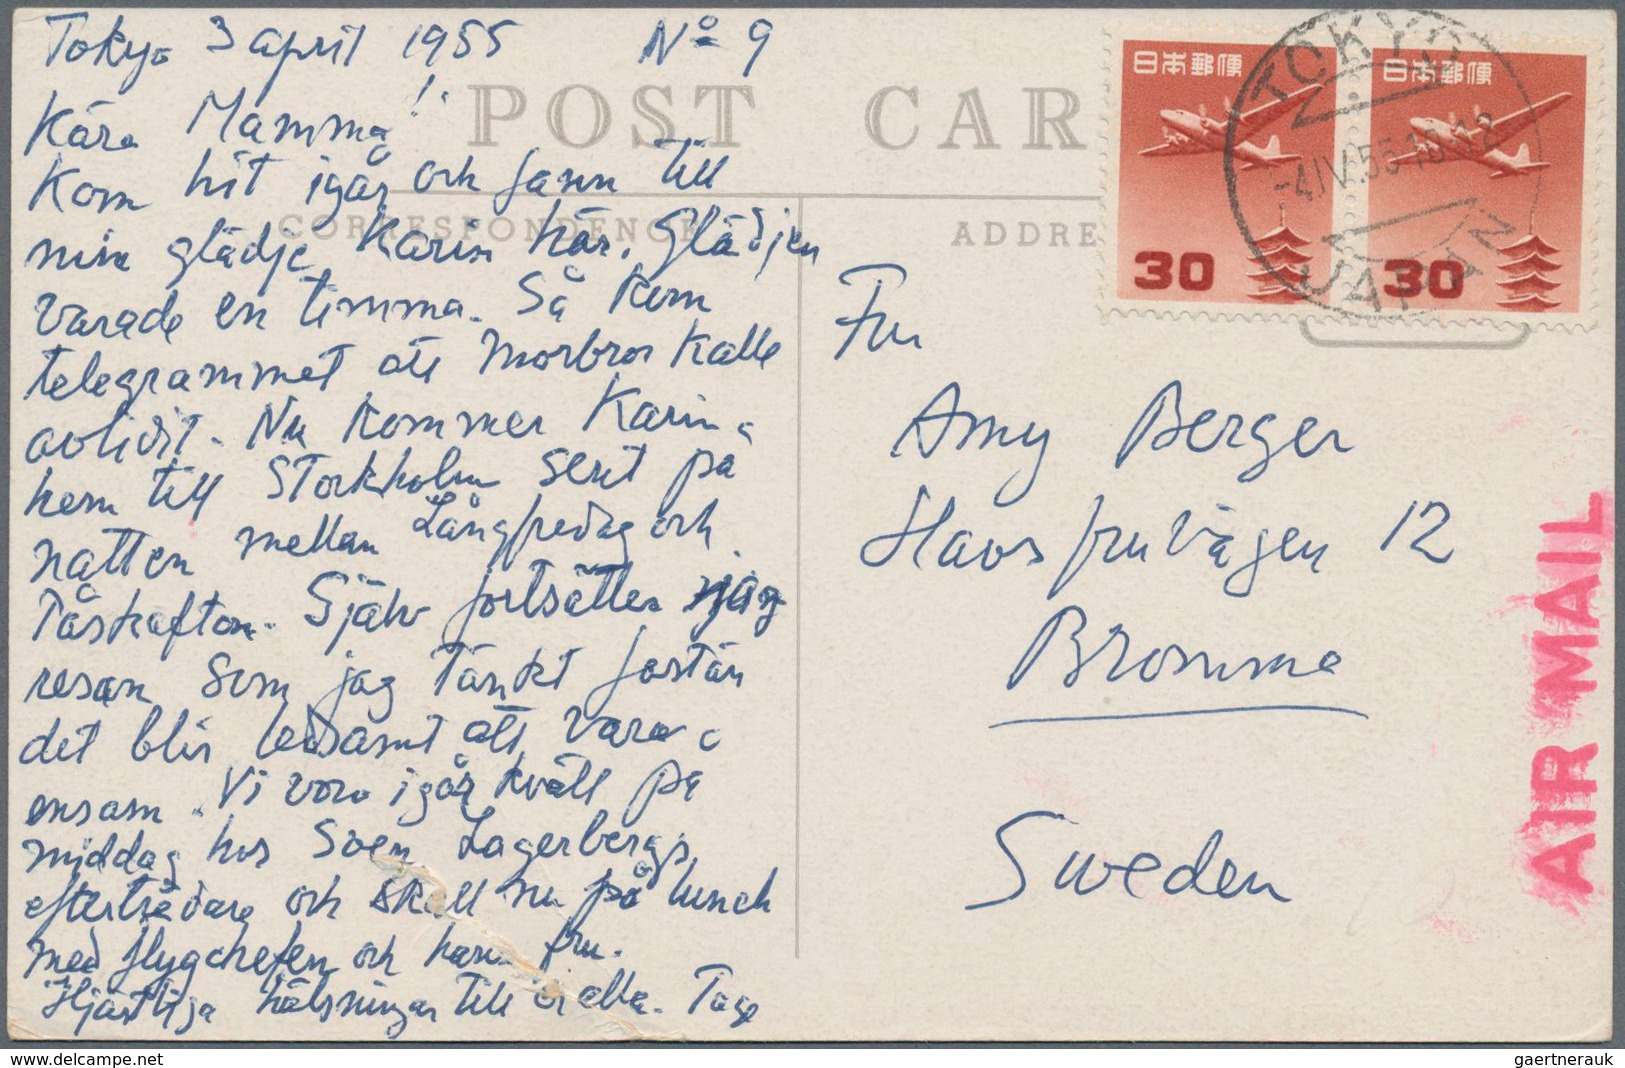 Tokyo 3 april 1955 No 9
Kära Mamma!
Kom hit igår och fann till
min glädje Karin här. Glädjen
varade en timma. Så kom
telegrammet att Morbror Kalle
avlidit. Nu kommer Karin
hem till Stockholm sent på
natten mellan Långfredag och
Påskafton. Själv fortsätter jag
resan som jag tänkt fastän
det blir ledsamt att vara
ensam. Vi voro igår kväll på
middag hos Sven Lagerbergs
efterträdare och skall nu på lunch
med flygchefen och hans fru.
Hjärtliga hälsningar till er alla. Tage
POST CAR
CORRESPONDENCE
ADDRE
日本郵便
30
日本郵便
30
TOKYO
-4.IV.55.10-12
JAPAN
Fru
Amy Berger
Havsfruvägen 12
Bromma
Sweden
AIR MAIL
gaertnerauk
www.delcampe.net